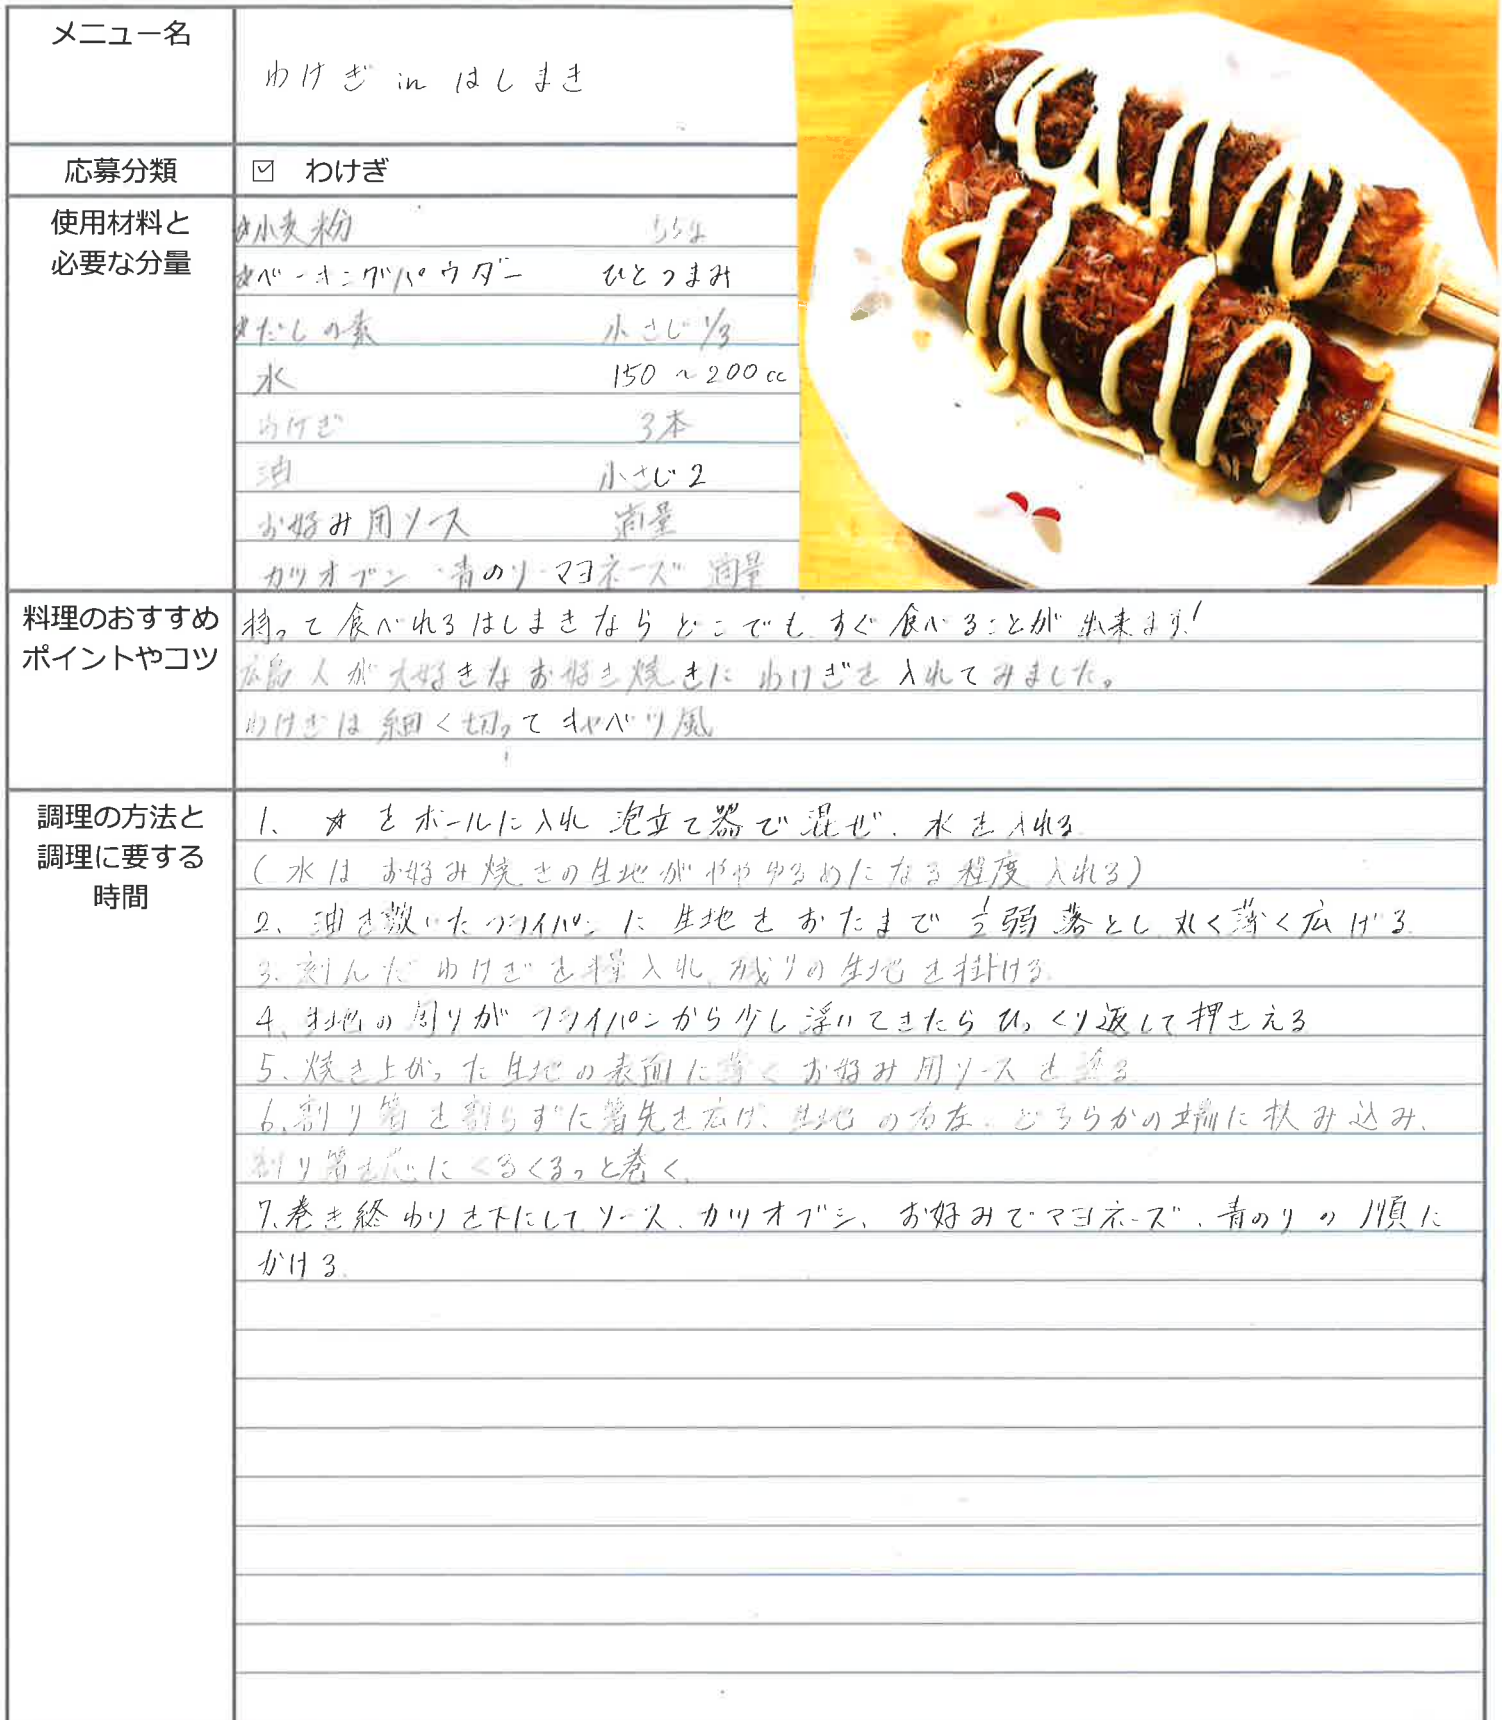 メニュー名
わけぎ in はしまき
応募分類
☑ わけぎ
使用材料と
必要な分量
☆小麦粉 55g
☆ベーキングパウダー ひとつまみ
☆だしの素 小さじ1/3
水 150〜200cc
わけぎ 3本
油 小さじ2
お好み用ソース 適量
カツオブシ・青のり・マヨネーズ 適量
料理のおすすめ
ポイントやコツ
持って食べれるはしまきならどこでもすぐ食べることが出来ます!
広島人が大好きなお好き焼きにわけぎを入れてみました。
わけぎは細く切ってキャベツ風
調理の方法と
調理に要する
時間
1、☆をボールに入れ泡立て器で混ぜ、水を入れる
(水はお好み焼きの生地がややゆるめになる程度入れる)
2、油を敷いたフライパンに生地をおたまで1/2弱落とし丸く薄く広げる
3、刻んだわけぎを入れ、残りの生地を掛ける
4、生地の周りがフライパンから少し浮いてきたらひっくり返して押さえる
5、焼き上がった生地の表面に薄くお好み用ソースを塗る
6、割り箸を割らずに箸先を広げ、生地の左、どちらかの端に挟み込み、
割り箸を芯にくるくるっと巻く、
7、巻き終わりを下にしてソース、カツオブシ、お好みでマヨネーズ、青のりの順に
かける